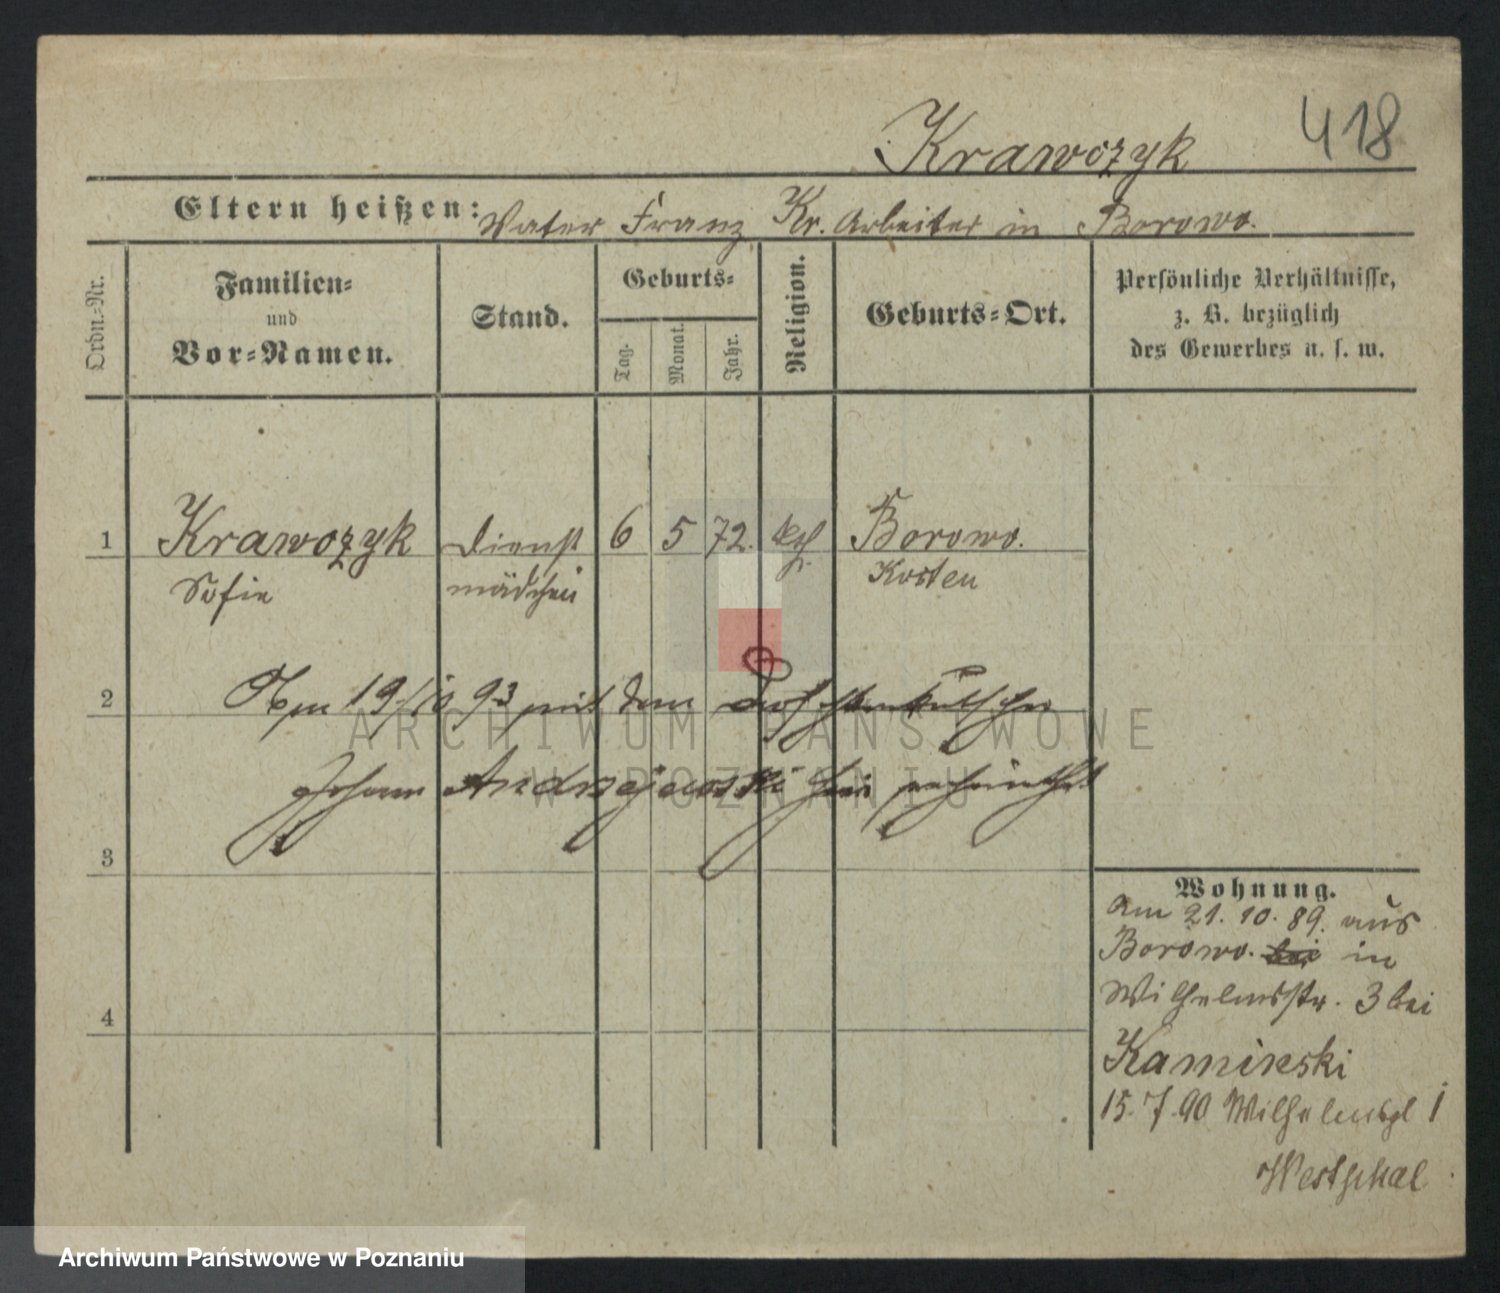 418
Krawczyk
Eltern heißen: Vater Franz Kr. Arbeiter in Borowo.
Ordn.-Nr.
Familien- und Vor-Namen.
Stand.
Geburts-
Tag.
Monat.
Jahr.
Religion.
Geburts-Ort.
Persönliche Verhältnisse,
z. B. bezüglich
des Gewerbes u. s. w.
1 Krawczyk Dienst 6 5 72. kth. Borowo.
Sofie mädchen Kosten
2 Am 19/10 93 mit dem Droschkenkutscher
Johann Andrzejewski hier verheirathet
3
4
Wohnung.
Am 21. 10. 89. aus
Borowo. bei in
Wilhelmsstr. 3 bei
Kaminski
15. 7. 90 Wilhelmspl 1
Westphal
ARCHIWUM PAŃSTWOWE
W POZNANIU
Archiwum Państwowe w Poznaniu